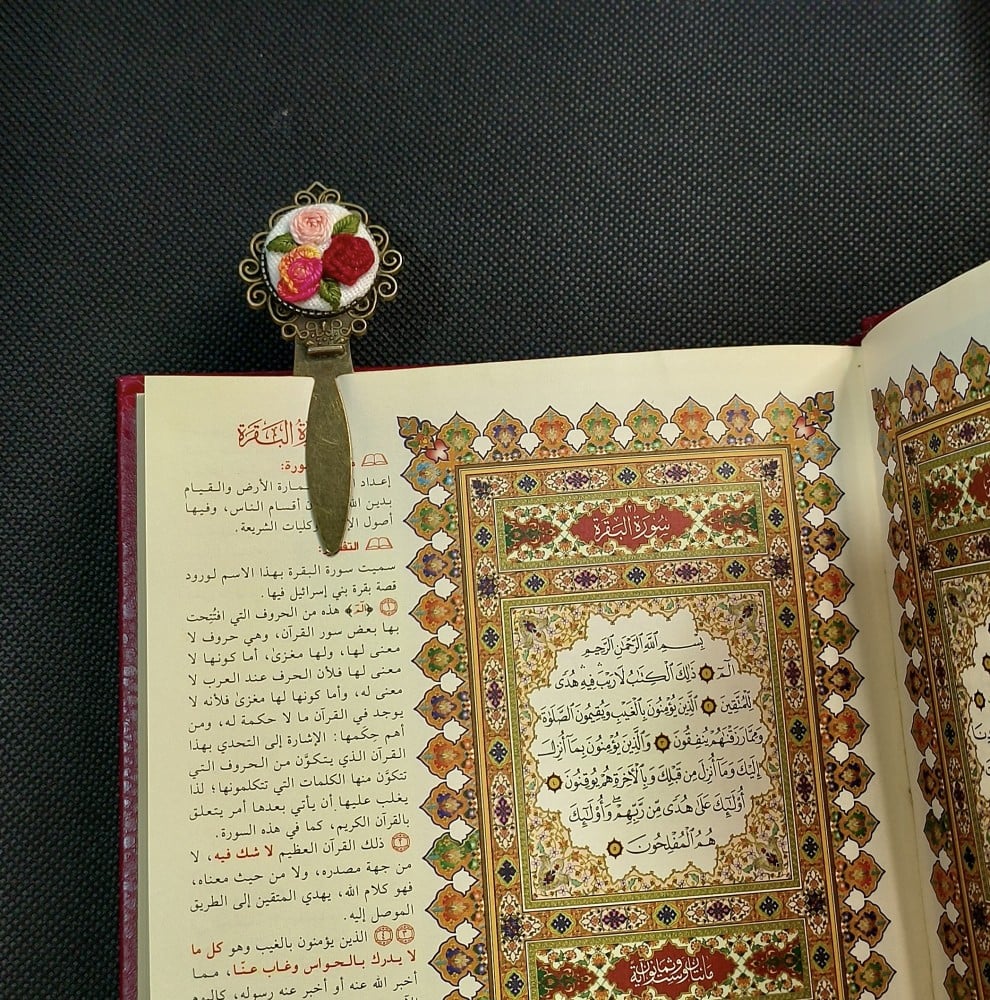 سُورَةُ البَقَرَةِ
(٢)
بِسْمِ اللَّهِ الرَّحْمَٰنِ الرَّحِيمِ
الٓمٓ ذَٰلِكَ الْكِتَابُ لَا رَيْبَ ۛ فِيهِ ۛ هُدًى
لِّلْمُتَّقِينَ الَّذِينَ يُؤْمِنُونَ بِالْغَيْبِ وَيُقِيمُونَ الصَّلَاةَ
وَمِمَّا رَزَقْنَاهُمْ يُنفِقُونَ وَالَّذِينَ يُؤْمِنُونَ بِمَا أُنزِلَ
إِلَيْكَ وَمَا أُنزِلَ مِن قَبْلِكَ وَبِالْآخِرَةِ هُمْ يُوقِنُونَ
أُولَٰئِكَ عَلَىٰ هُدًى مِّن رَّبِّهِمْ ۖ وَأُولَٰئِكَ
هُمُ الْمُفْلِحُونَ
مائتان وست وثمانون آية
البَقَرَة
إعداد الأرض والقيام
بدين الله أقسام الناس، وفيها
أصول وكليات الشريعة.
سميت سورة البقرة بهذا الاسم لورود
قصة بقرة بني إسرائيل فيها.
١ ﴿الٓمٓ﴾ هذه من الحروف التي افتُتحت
بها بعض سور القرآن، وهي حروف لا
معنى لها، ولها مغزىً، أما كونها لا
معنى لها فلأن الحرف عند العرب لا
معنى له، وأما كونها لها مغزىً فلأنه لا
يوجد في القرآن ما لا حكمة له، ومن
أهم حِكَمها: الإشارة إلى التحدي بهذا
القرآن الذي يتكوَّن من الحروف التي
تتكوَّن منها الكلمات التي تتكلمونها؛ لذا
يغلب عليها أن يأتي بعدها أمر يتعلق
بالقرآن الكريم، كما في هذه السورة.
٢ ذلك القرآن العظيم لا شك فيه، لا
من جهة مصدره، ولا من حيث معناه،
فهو كلام الله، يهدي المتقين إلى الطريق
الموصل إليه.
٣ ٤ الذين يؤمنون بالغيب وهو كل ما
لا يدرك بالحواس وغاب عنّا، مما
أخبر الله عنه أو أخبر عنه رسوله، كاليوم